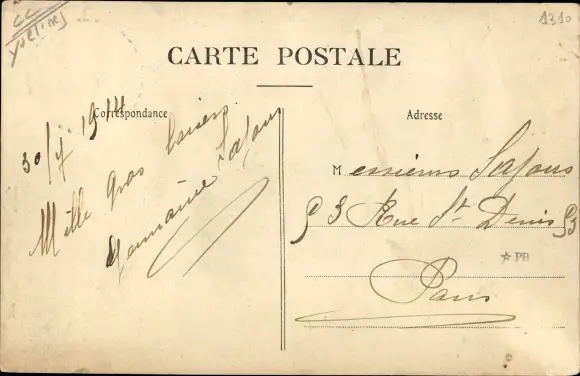 CC
Yvelines
1310
CARTE POSTALE
Correspondance
Adresse
30/7 1914
Mille gros baisers
Germaine Lafous
Messieurs Lafous
53 Rue St Denis 53
☆ PB
Paris